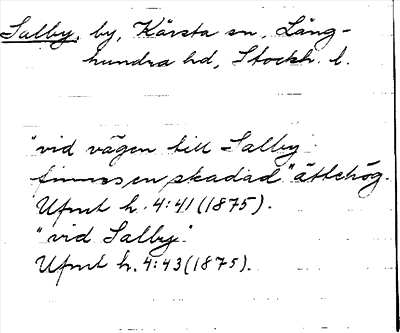 Salby, by, Kårsta sn, Lång-
hundra hd, Stockh. l.
"vid vägen till Salby
finnes en skadad" ättehög.
Ufmt h. 4:41 (1875).
"vid Salby."
Ufmt h. 4:43 (1875).